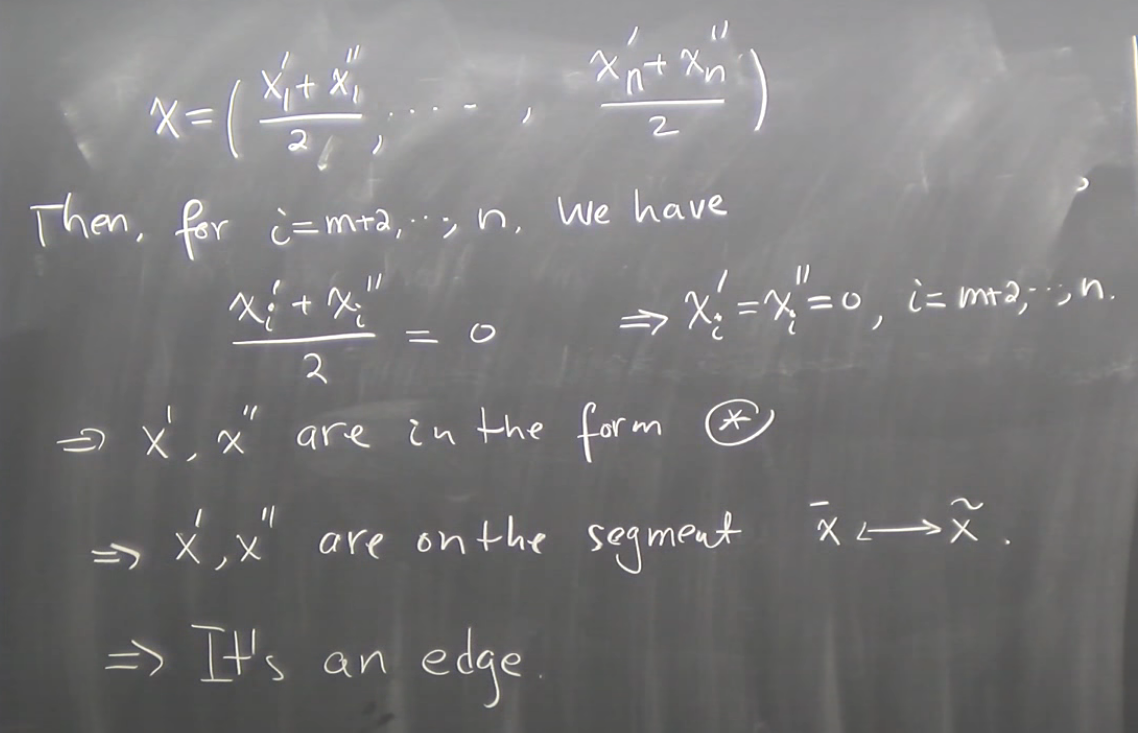 x = ( (x₁' + x₁'')/2 , .... , (xₙ' + xₙ'')/2 )
Then, for i=m+2, ..., n, We have
(xᵢ' + xᵢ'')/2 = 0 ⇒ xᵢ' = xᵢ'' = 0, i= m+2, ..., n.
⇒ x', x'' are in the form ⊛
⇒ x', x'' are on the segment x̄ ⟷ x̃ .
⇒ It's an edge.